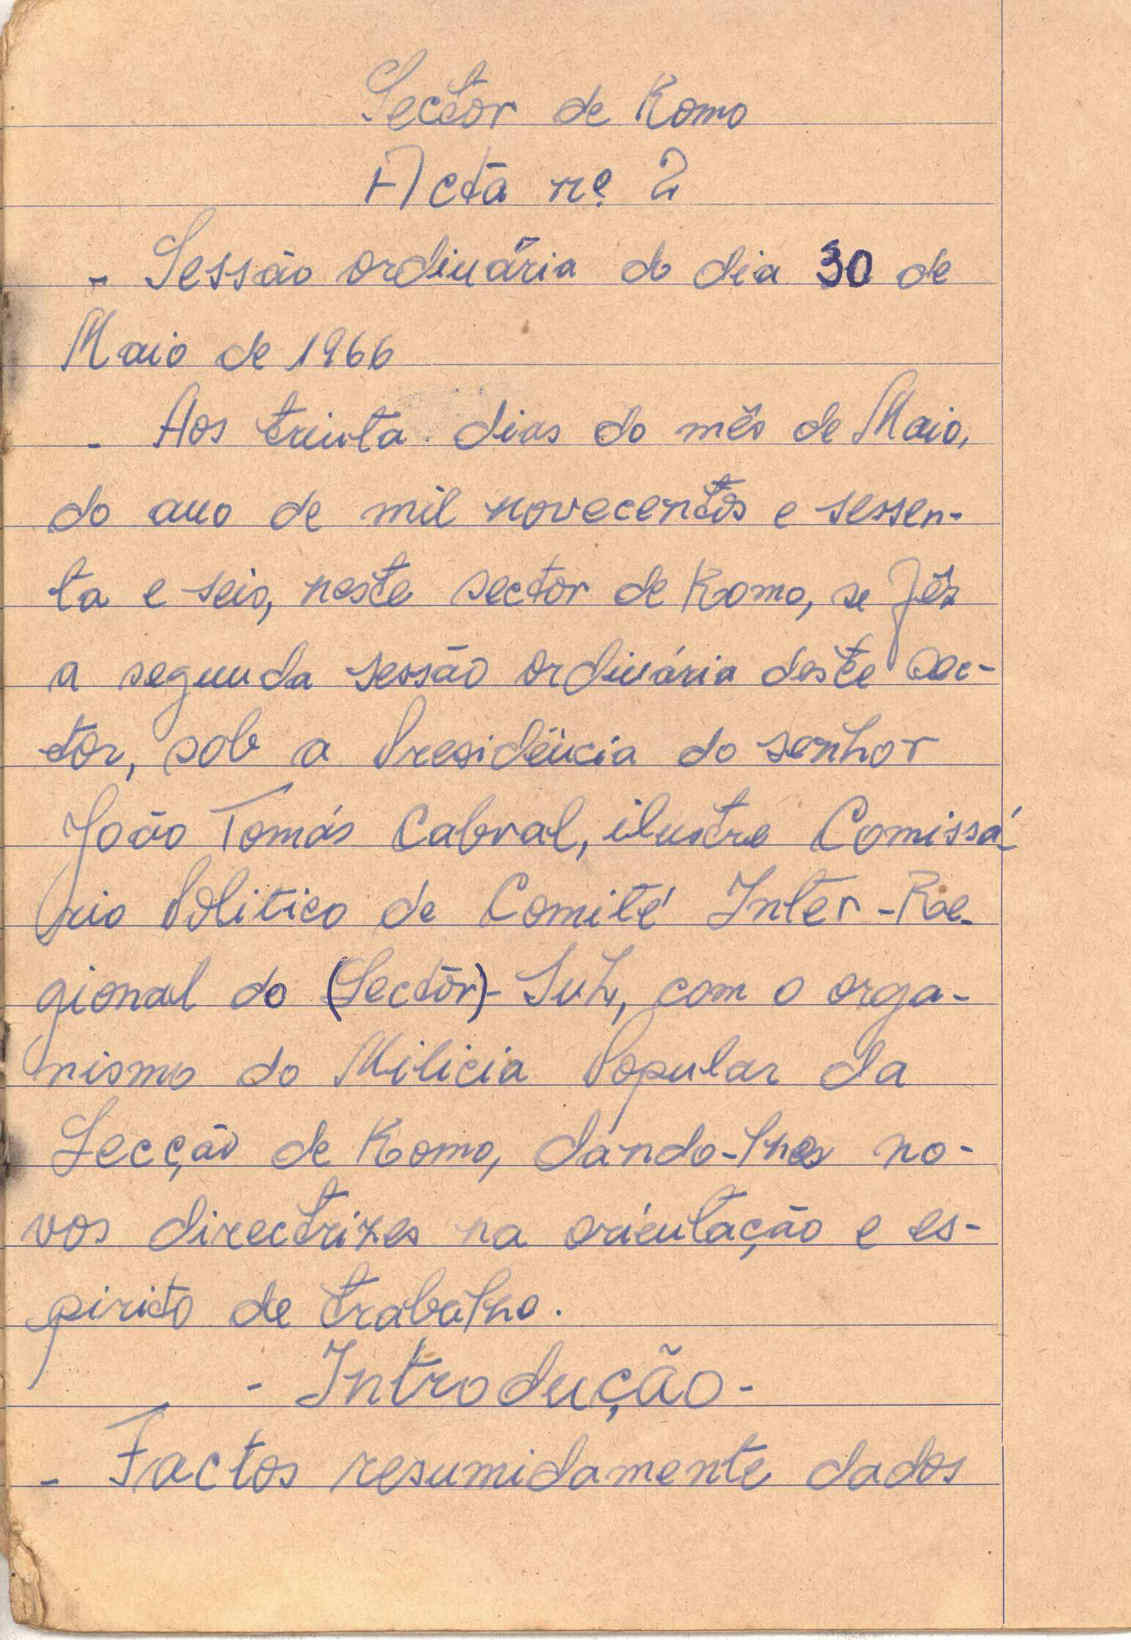 Sector de Komo
Acta nº 2
- Sessão ordinária do dia 30 de
Maio de 1966
- Aos trinta dias do mês de Maio,
do ano de mil novecentos e sessen-
ta e seis, neste sector de Komo, se fêz
a segunda sessão ordinária deste Sec-
tor, sob a Presidência do senhor
João Tomás Cabral, ilustre Comissá-
rio Politico de Comité Inter-Re-
gional do (Sector)-Sul, com o orga-
nismo do Milicia Popular da
Secção de Komo, dando-lhes no-
vos directrizes na orientação e es-
pirito de trabalho.
- Introdução -
- Factos resumidamente dados